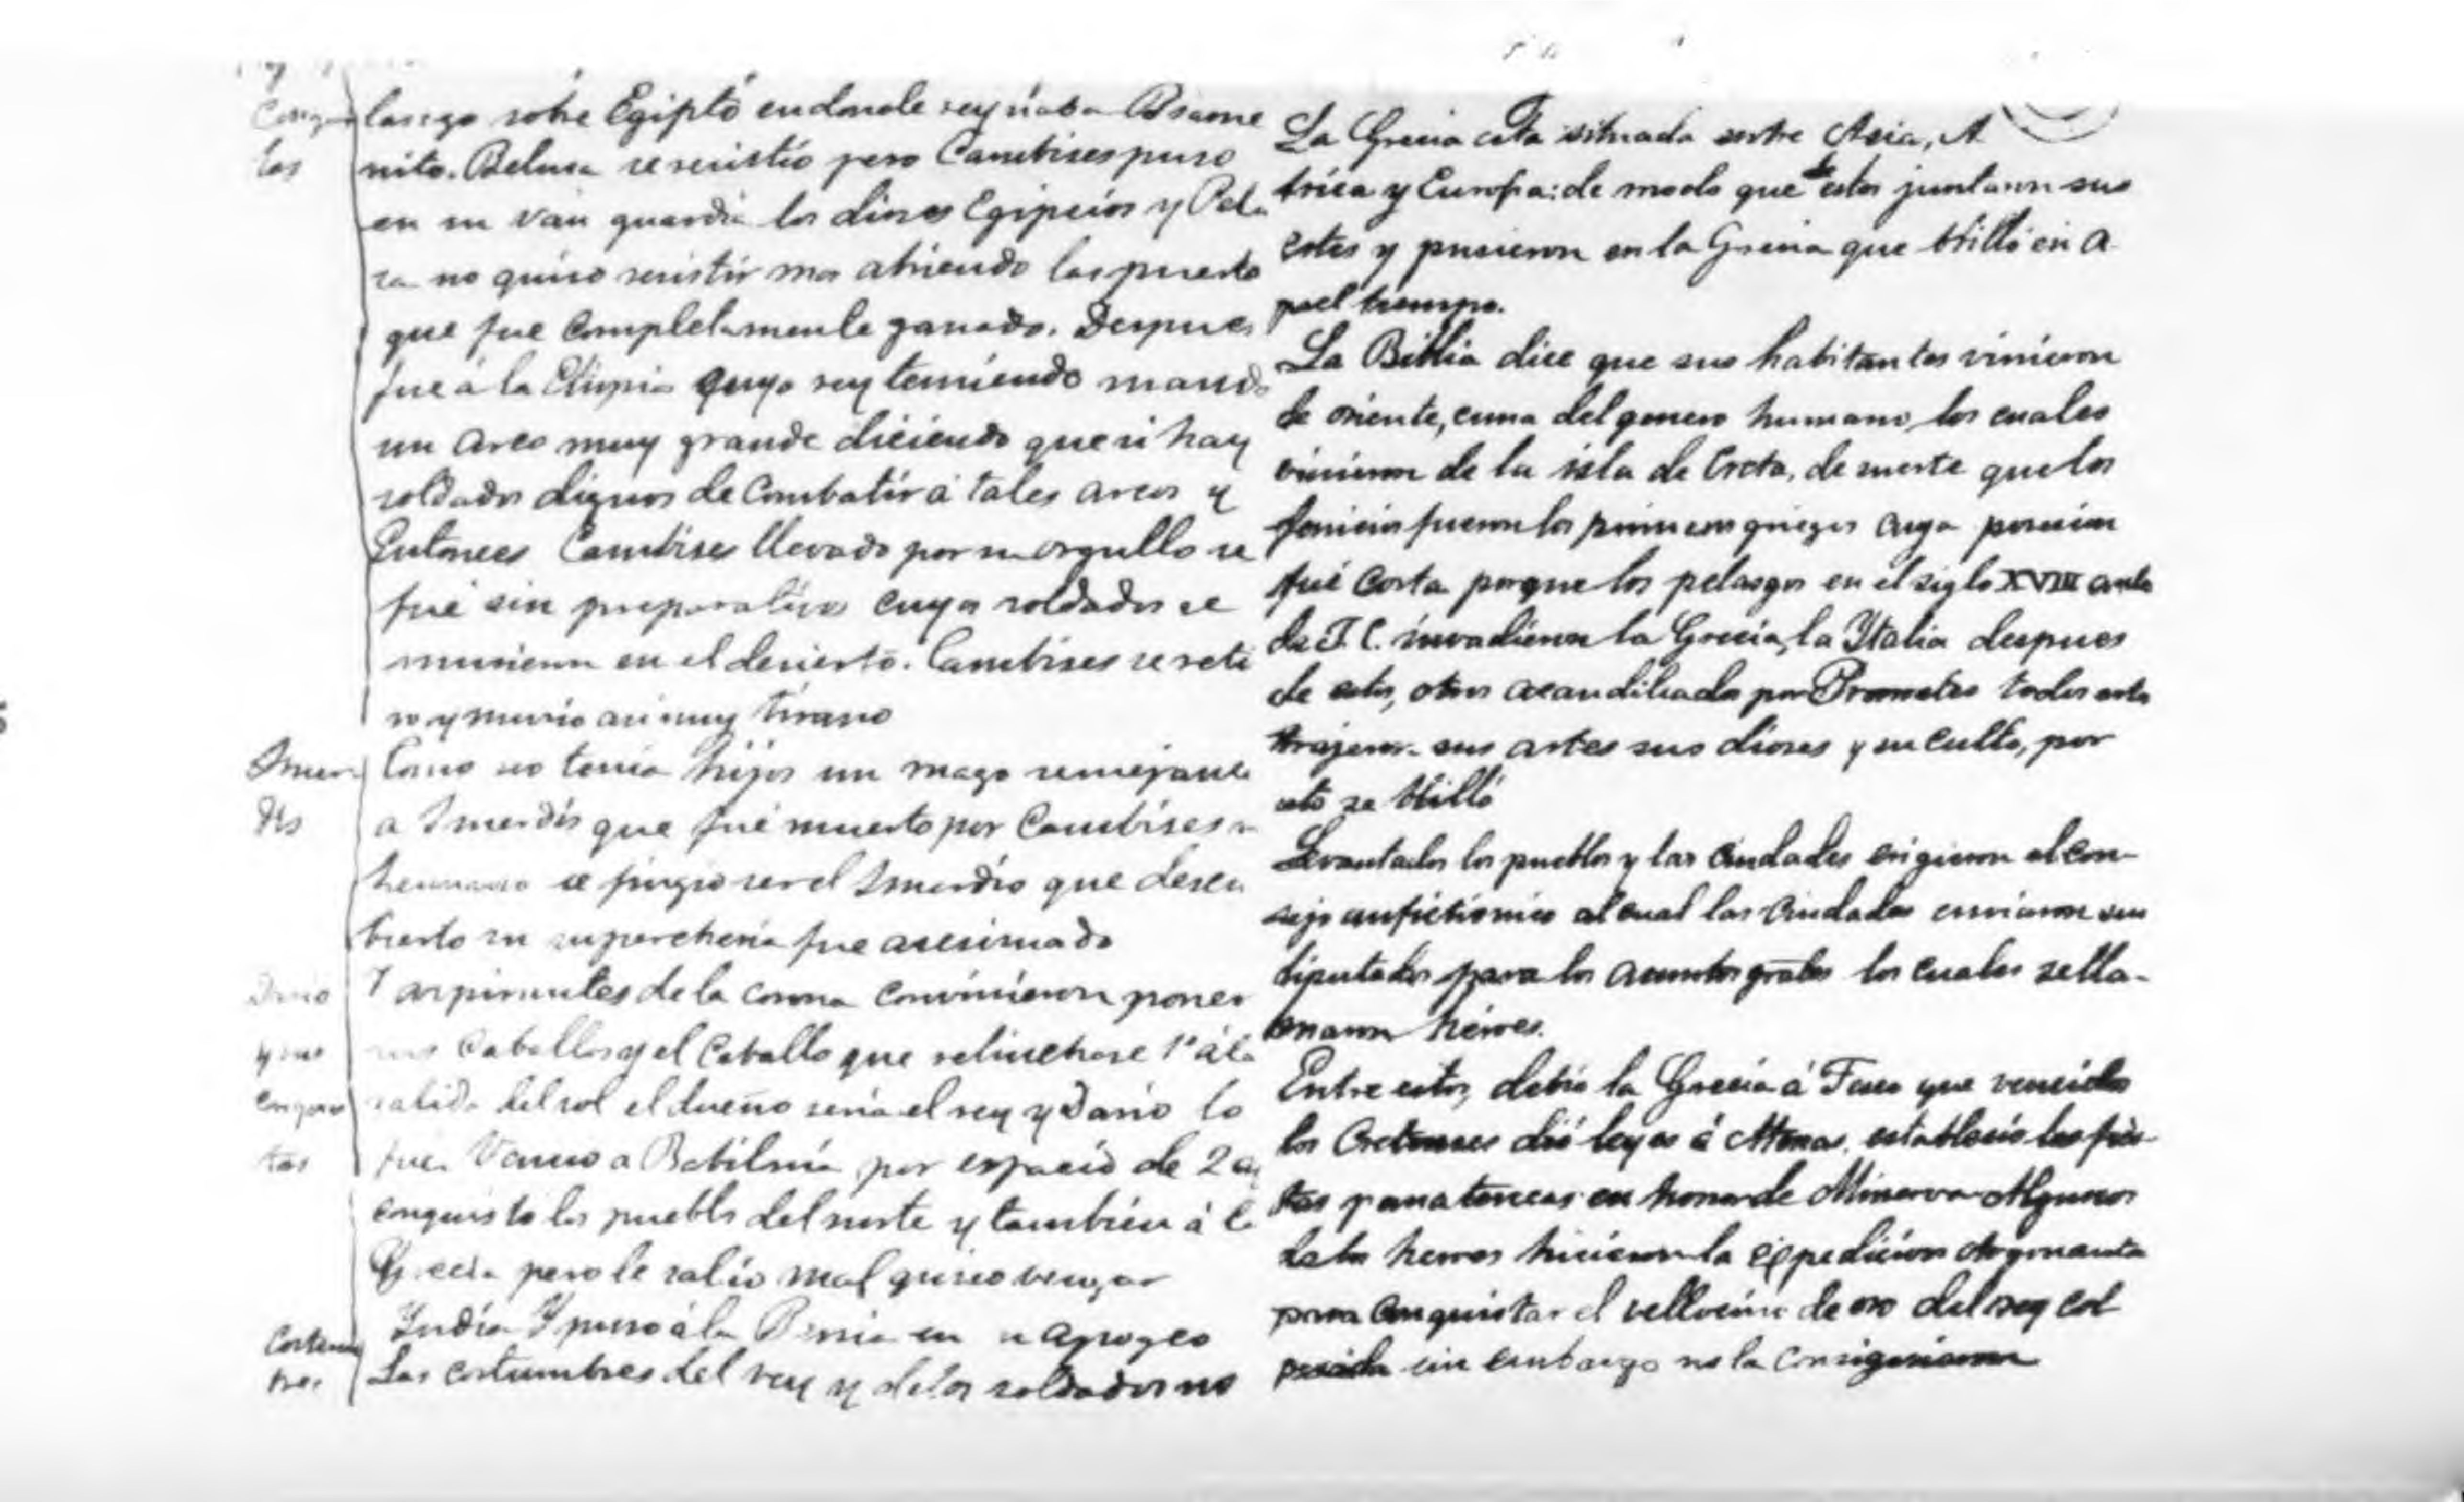 largo sobre Egipto en donde reynaba Psame
nito. Pelusa se resistió pero Cambises puso
en su van guardia los dioses Egipcios y Pelu
sa no quiso resistir mas abriendo las puerta
que fue completamente ganado. Despues
fue á la Etiopia cuyo rey temiendo mandó
un arco muy grande diciendo que si hay
soldados dignos de combatir á tales arcos y
Entonces Cambises llevado por su orgullo se
fué sin preparativos cuyos soldados se
murieron en el desierto. Cambises se reti
ro y murió asi muy tirano
Smer
dis
Como no tenia hijos un mago semejante
a Smerdis que fué muerto por Cambises
hermano se fingio ser el Smerdis que descu
bierto su supercheria fue asesinado
Dario
y sus
conquis
tas
7 aspirantes de la corona convinieron poner
sus caballos y el caballo que relinchase 1º á la
salida del sol el dueño seria el rey y Dario lo
fue. Vencio a Babilonia por espacio de 2 a
conquisto los pueblos del norte y también á la
Grecia pero le salio mal quiso vengar
India Y puso á la Persia en su apogeo
Costum
bres
Las costumbres del rey y de los soldados no
La Grecia esta situada entre Asia, A
frica y Europa: de modo que estos juntaron sus
artes y pusieron en la Grecia que brilló en a
quel tiempo.
La Biblia dice que sus habitantes vinieron
de oriente, cuna del genero humano, los cuales
vinieron de la isla de Creta, de suerte que los
fenicios fueron los primeros griegos cuya posesion
fué corta porque los pelasgos en el siglo XVIII antes
de J. C. invadieron la Grecia, la Ytalia despues
de estos, otros acaudillados por Prometeo todos estos
trajeron sus artes sus dioses y su culto, por
esto se brilló
Levantados los pueblos y las ciudades erigieron el con-
sejo anfictionico al cual las ciudades enviaron sus
diputados para los asuntos grales los cuales se lla-
maron héroes.
Entre estos, debio la Grecia á Teseo que vencidos
los Cretenses dió leyes á Atenas, establecio las fies-
tas panateneas en honor de Minerva Algunos
de los heroes hicieron la expedicion Argonauta
para conquistar el vellocino de oro del rey Col
sin embargo no la consiguieron